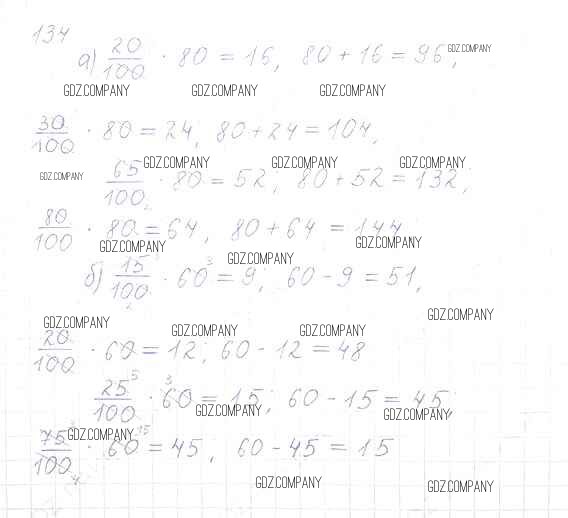 134
а) 20/100 · 80 = 16, 80 + 16 = 96, GDZ.COMPANY
GDZ.COMPANY GDZ.COMPANY GDZ.COMPANY
30/100 · 80 = 24, 80 + 24 = 104,
GDZ.COMPANY GDZ.COMPANY GDZ.COMPANY
GDZ.COMPANY 65/100 · 80 = 52; 80 + 52 = 132;
80/100 · 80 = 64, 80 + 64 = 144
GDZ.COMPANY GDZ.COMPANY GDZ.COMPANY
б) 15/100 · 60 = 9; 60 - 9 = 51,
GDZ.COMPANY GDZ.COMPANY GDZ.COMPANY GDZ.COMPANY
20/100 · 60 = 12; 60 - 12 = 48
25/100 · 60 = 15; 60 - 15 = 45,
GDZ.COMPANY GDZ.COMPANY
GDZ.COMPANY
75/100 · 60 = 45, 60 - 45 = 15
GDZ.COMPANY GDZ.COMPANY